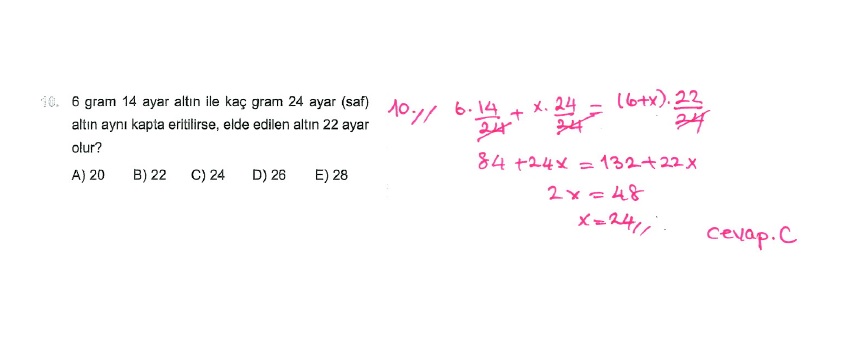 10. 6 gram 14 ayar altın ile kaç gram 24 ayar (saf)
altın aynı kapta eritilirse, elde edilen altın 22 ayar
olur?
A) 20 B) 22 C) 24 D) 26 E) 28
10.// 6. 14/24 + x. 24/24 = (6+x). 22/24
84 + 24x = 132 + 22x
2x = 48
x = 24//
cevap. C